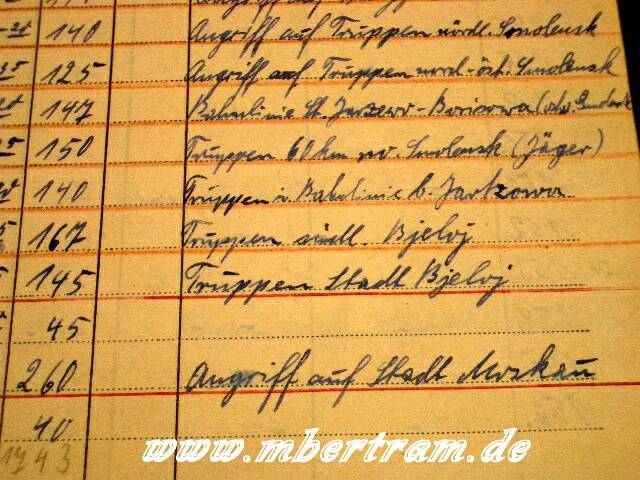 140 Angriff auf Truppen nördl. Smolensk
125 Angriff auf Truppen nord-öst. Smolensk
147 Bahnlinie St. Jarzewo - Borissowa
150 Truppen 60 km nw. Smolensk (Jäger)
140 Truppen u. Bahnlinie b. Jartzowa
167 Truppen südl. Bjeloj
145 Truppen Stadt Bjeloj
45
260 Angriff auf Stadt Moskau
40
1743
www.mbertram.de